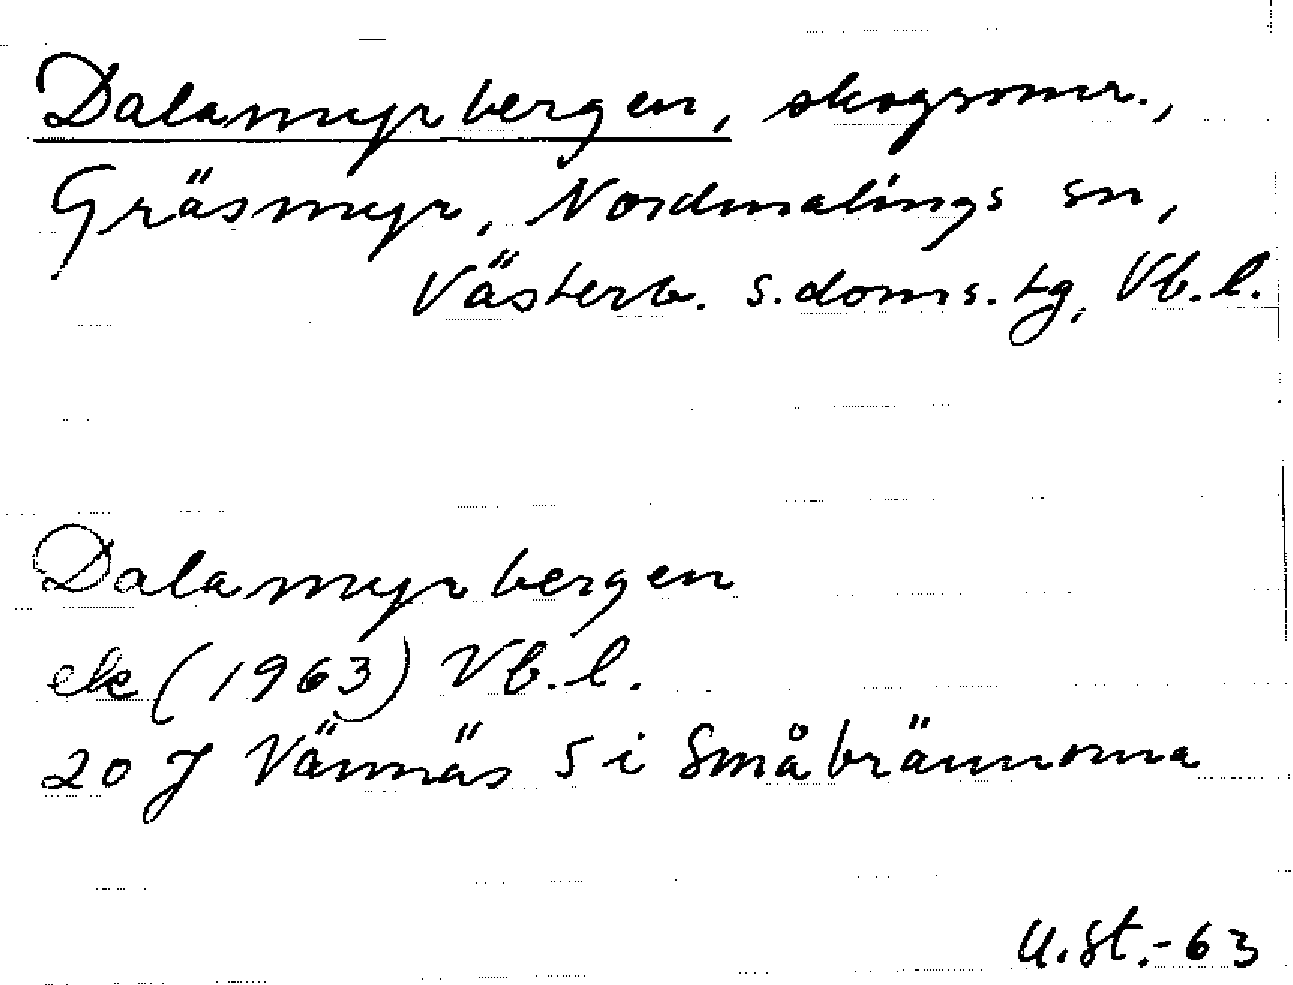 Dalamyrbergen, skogsomr.,
Gräsmyr, Nordmalings sn,
Västerb. s.doms.tg, Vb.l.
Dalamyrbergen
ek (1963) Vb.l.
20 J Vännäs 5 i Småbrännorna
U.St.-63